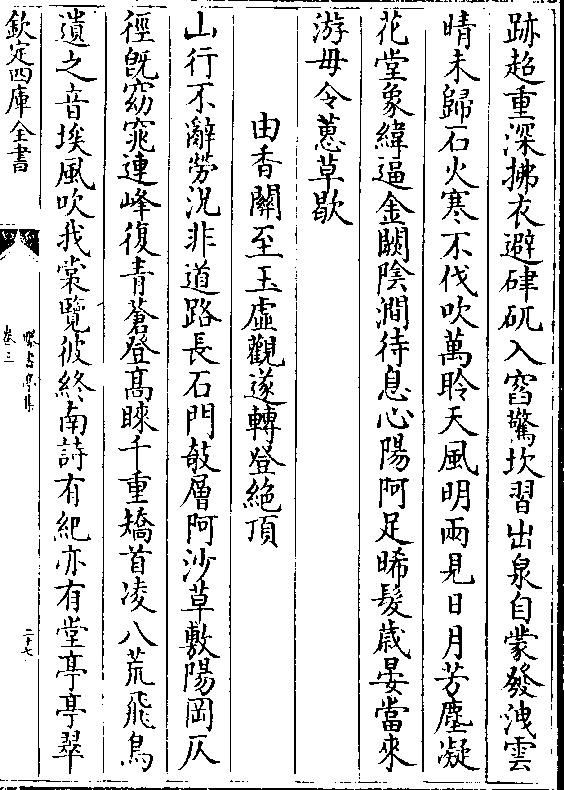 跡超重深拂衣避硉矹入窞驚坎習出泉自蒙發洩雲
晴未歸石火寒不伐吹萬聆天風明兩見日月芳塵凝
花堂象緯逼金闕陰澗待息心陽阿足晞髮歲晏當來
游毋令蕙草歇
由香關至玉虛觀遂轉登絶頂
山行不辭勞况非道路長石門敧層阿沙草敷陽岡仄
徑旣窈窕連峰復青蒼登髙睞千重矯首凌八荒飛鳥
遺之音埃風吹我裳覽彼終南詩有紀亦有堂亭亭翠
欽定四庫全書
卷三
二十七